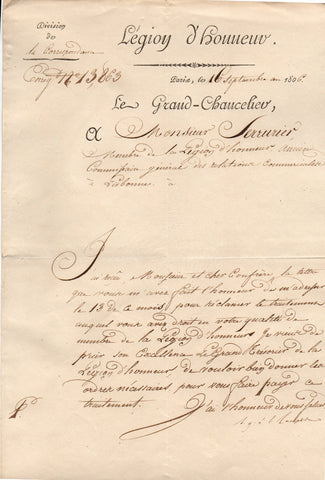 Division
de
la Correspondance
Enreg. N° 13,863
Légion d'Honneur.
Paris, le 16 septembre an 1806.
Le Grand-Chancelier,
A Monsieur Serrurier
Membre de la Légion d'honneur, ancien
Commissaire général des relations Commerciales
à Lisbonne. à
J'ai reçu, Monsieur et cher Confrère, la lettre
que vous m'avez fait l'honneur de m'adresser
le 13 de ce mois, pour réclamer le traitement
auquel vous avez droit en votre qualité de
membre de la Légion d'honneur. Je viens de
prier son Excellence le Grand Trésorier de la
Légion d'honneur de vouloir bien donner les
ordres nécessaires pour vous faire payer ce
traitement.
J'ai l'honneur de vous saluer